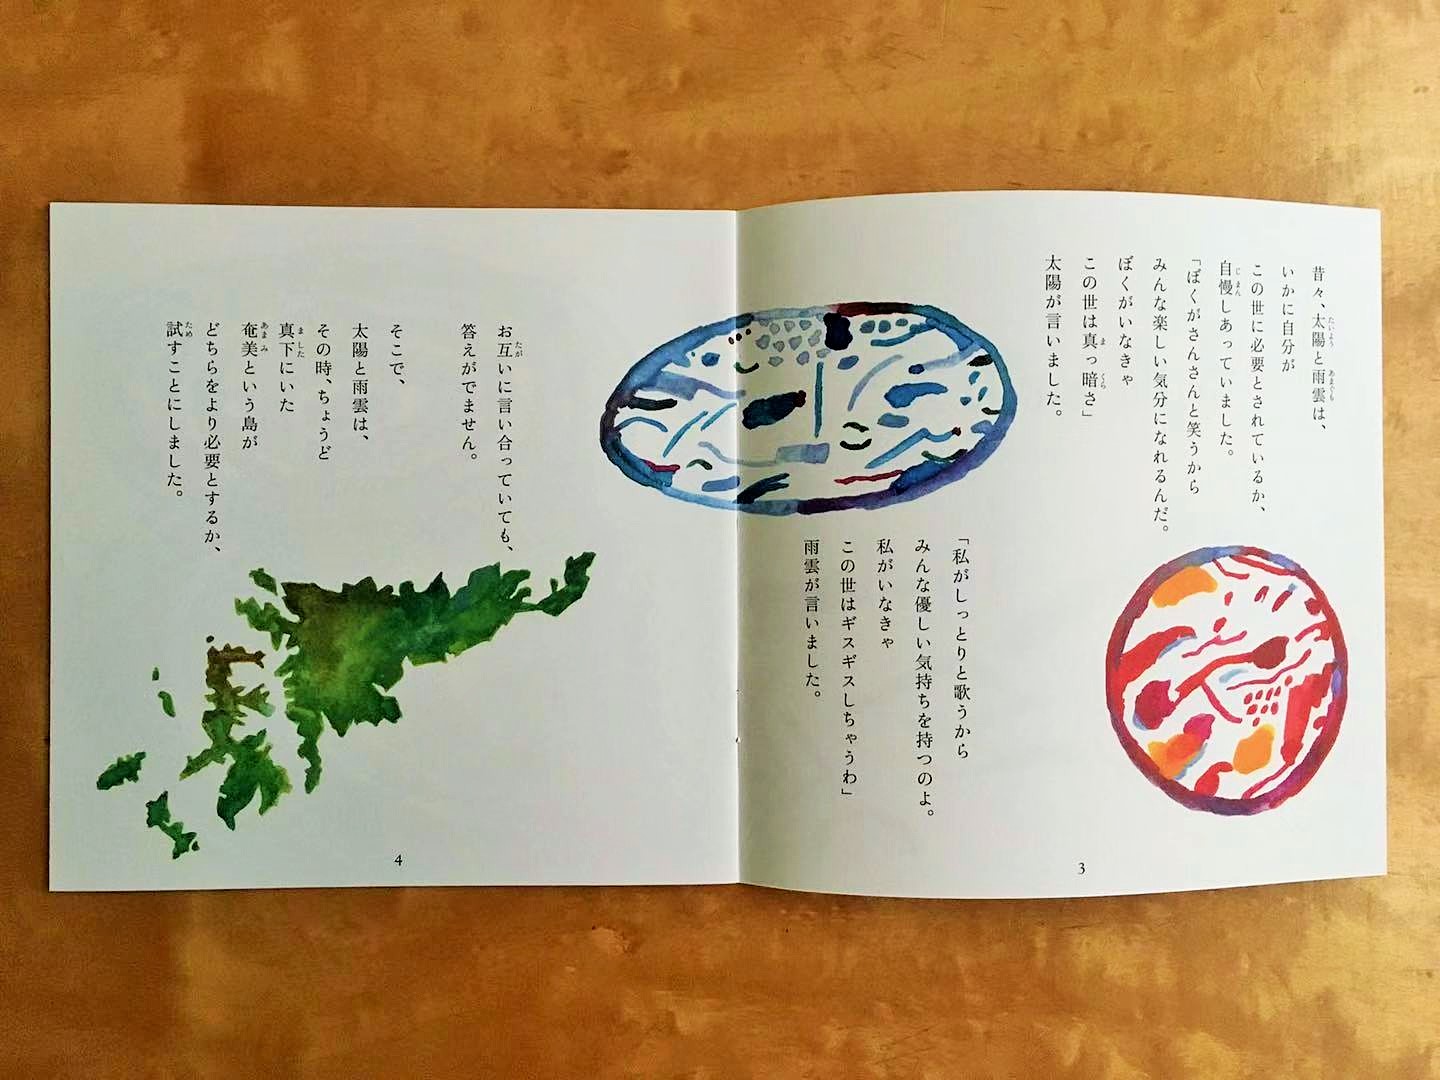 昔々、太陽と雨雲は、
いかに自分が
この世に必要とされているか、
自慢しあっていました。
「ぼくがさんさんと笑うから
みんな楽しい気分になれるんだ。
ぼくがいなきゃ
この世は真っ暗さ」
太陽が言いました。
「私がしっとりと歌うから
みんな優しい気持ちを持つのよ。
私がいなきゃ
この世はギスギスしちゃうわ」
雨雲が言いました。
3
お互いに言い合っていても、
答えがでません。
そこで、
太陽と雨雲は、
その時、ちょうど
真下にいた
奄美という島が
どちらをより必要とするか、
試すことにしました。
4